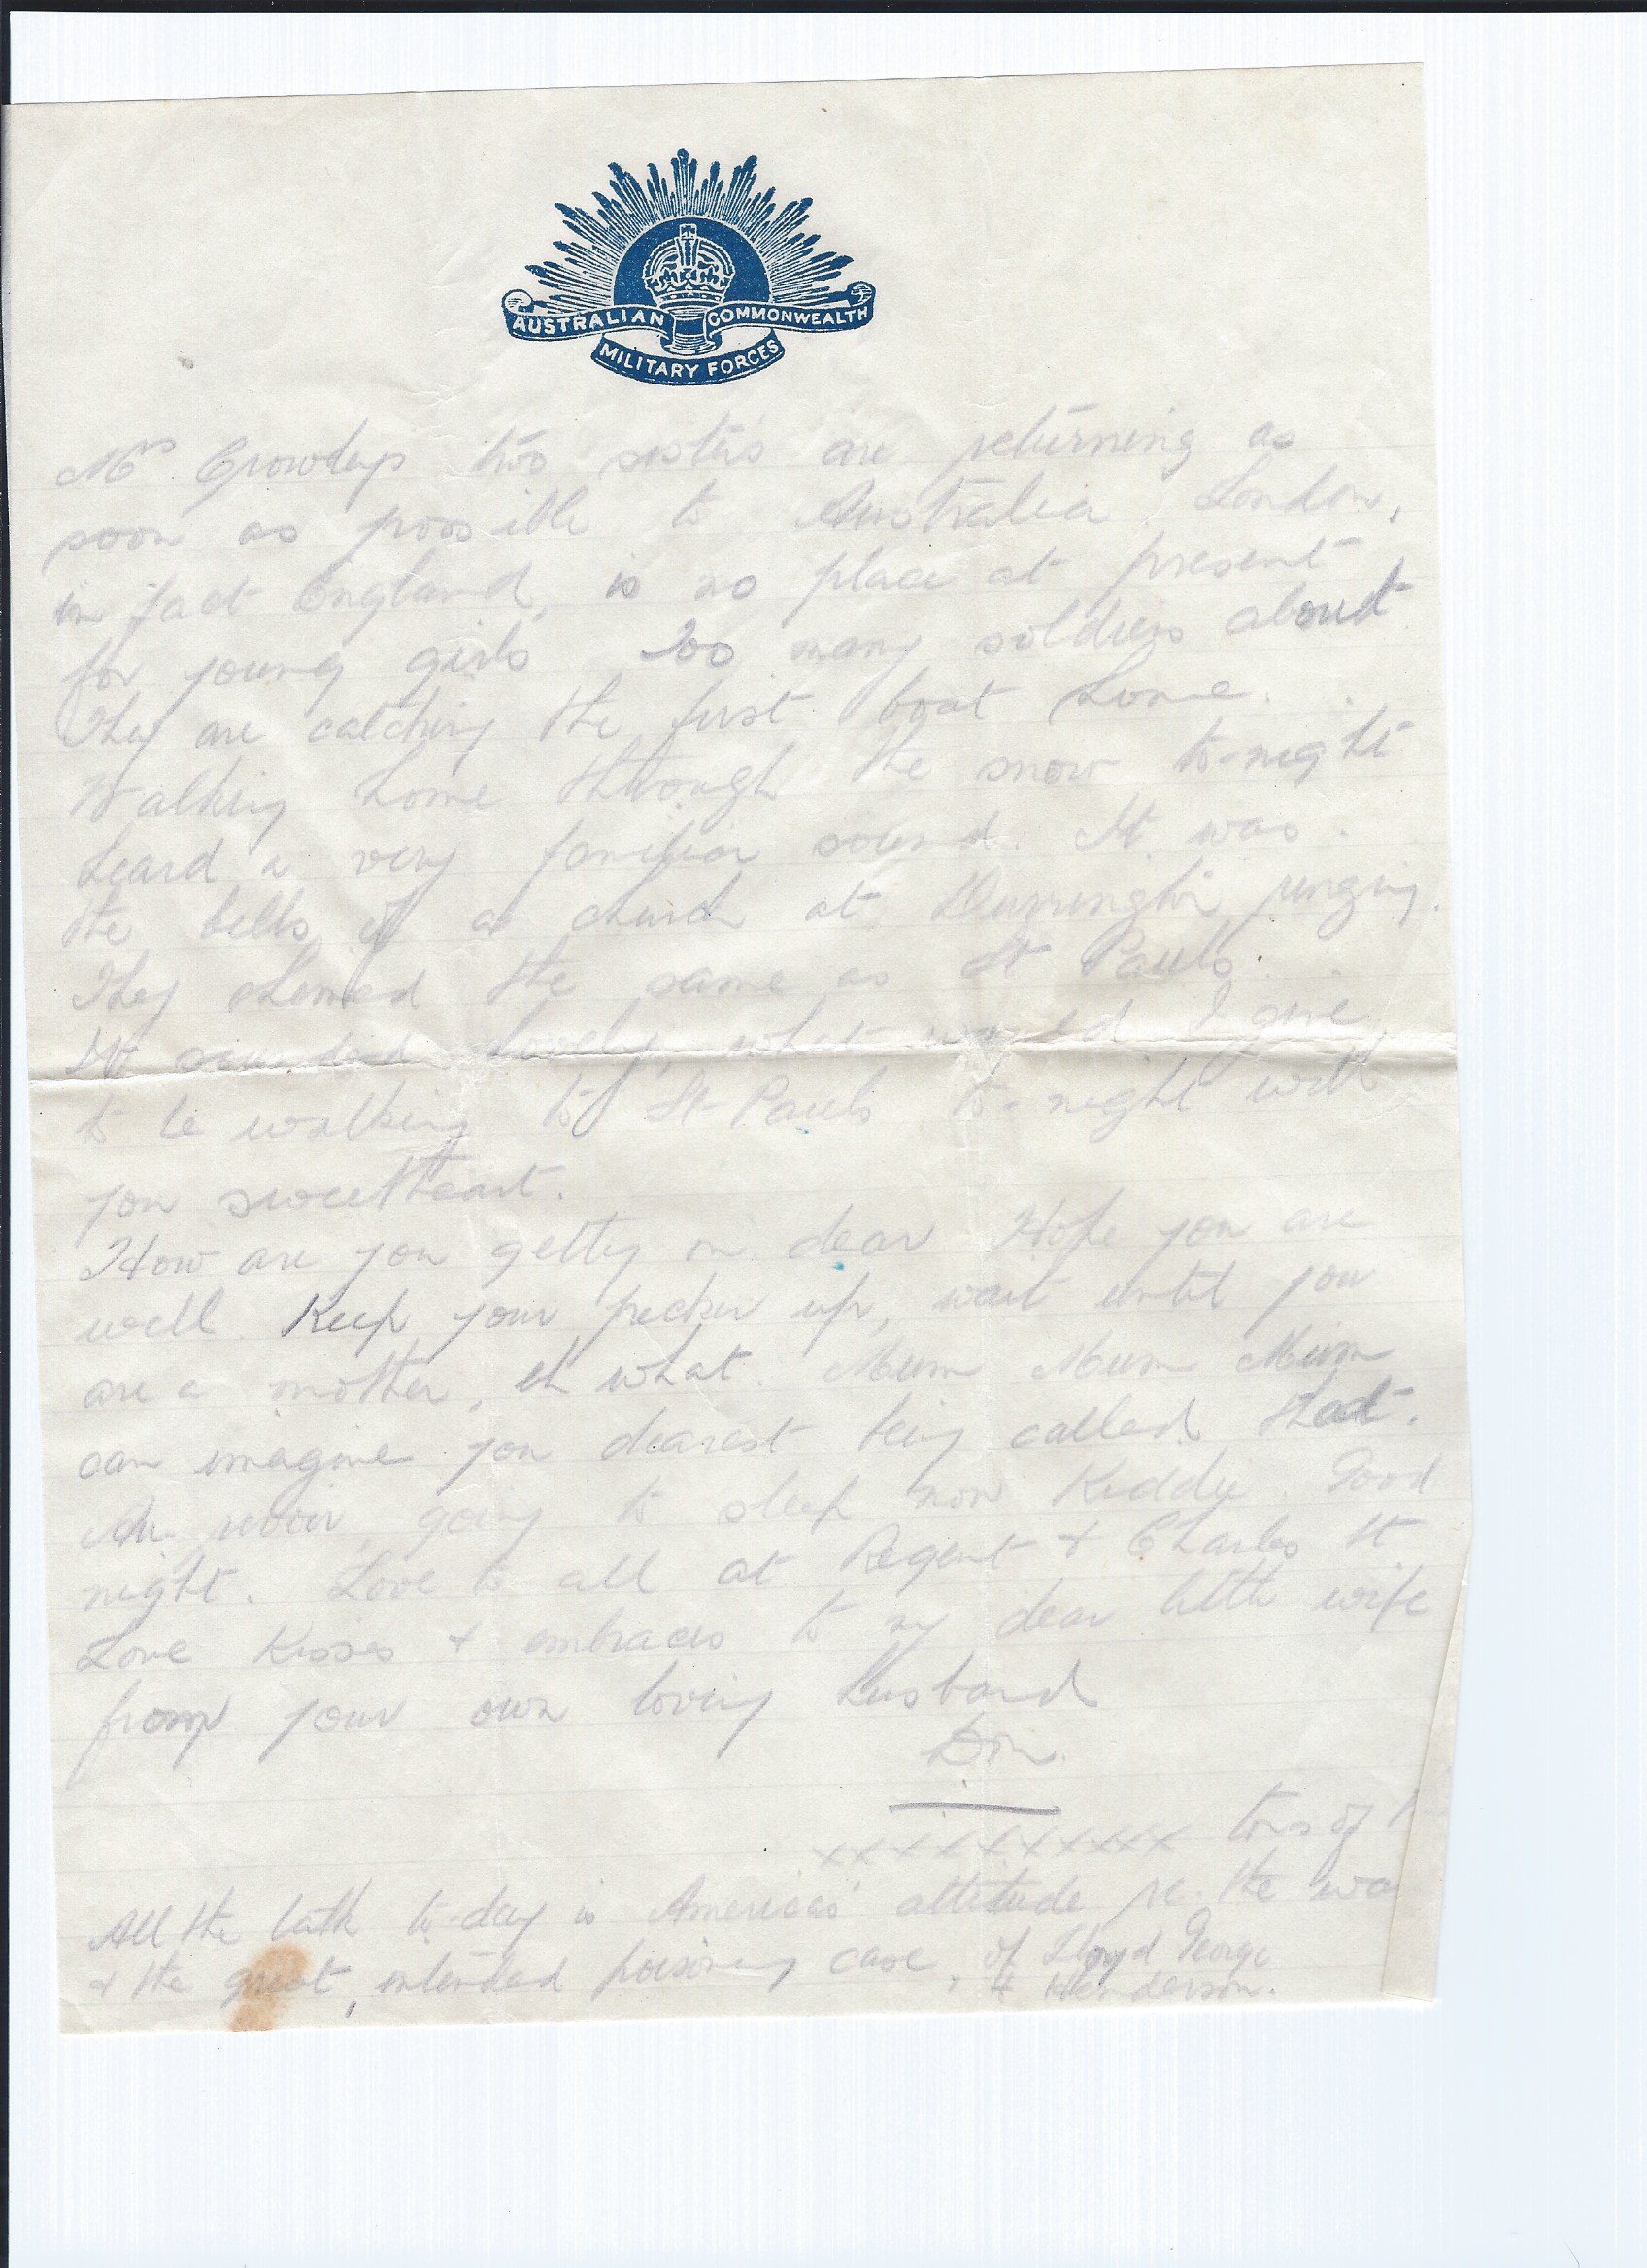 AUSTRALIAN COMMONWEALTH
MILITARY FORCES
Mrs two sisters are returning as
soon as possible to Australia London,
in fact England, is no place at present
for young girls Too many soldiers about
They are catching the first boat home.
Walking home through the snow to-night
heard a very familiar sound. It was
the bells of a church at Durrington ringing.
They chimed the same as St Pauls.
It sounded lovely, what would I give
to be walking to St Pauls to-night with
you sweetheart.
How are you getting on dear Hope you are
well. Keep your pecker up, wait until you
are a mother, eh what. Mum Mum Mum
can imagine you dearest being called that.
Au revoir, going to sleep now Kiddie. Good
night. Love to all at Regent & Charles St
Love Kisses & embraces to my dear little wife
from your own loving husband
xxxxxxxxxx tons of
All the talk to-day is Americas' attitude re. the wa
& the great, intended poisoning case, of Lloyd George
& Henderson.